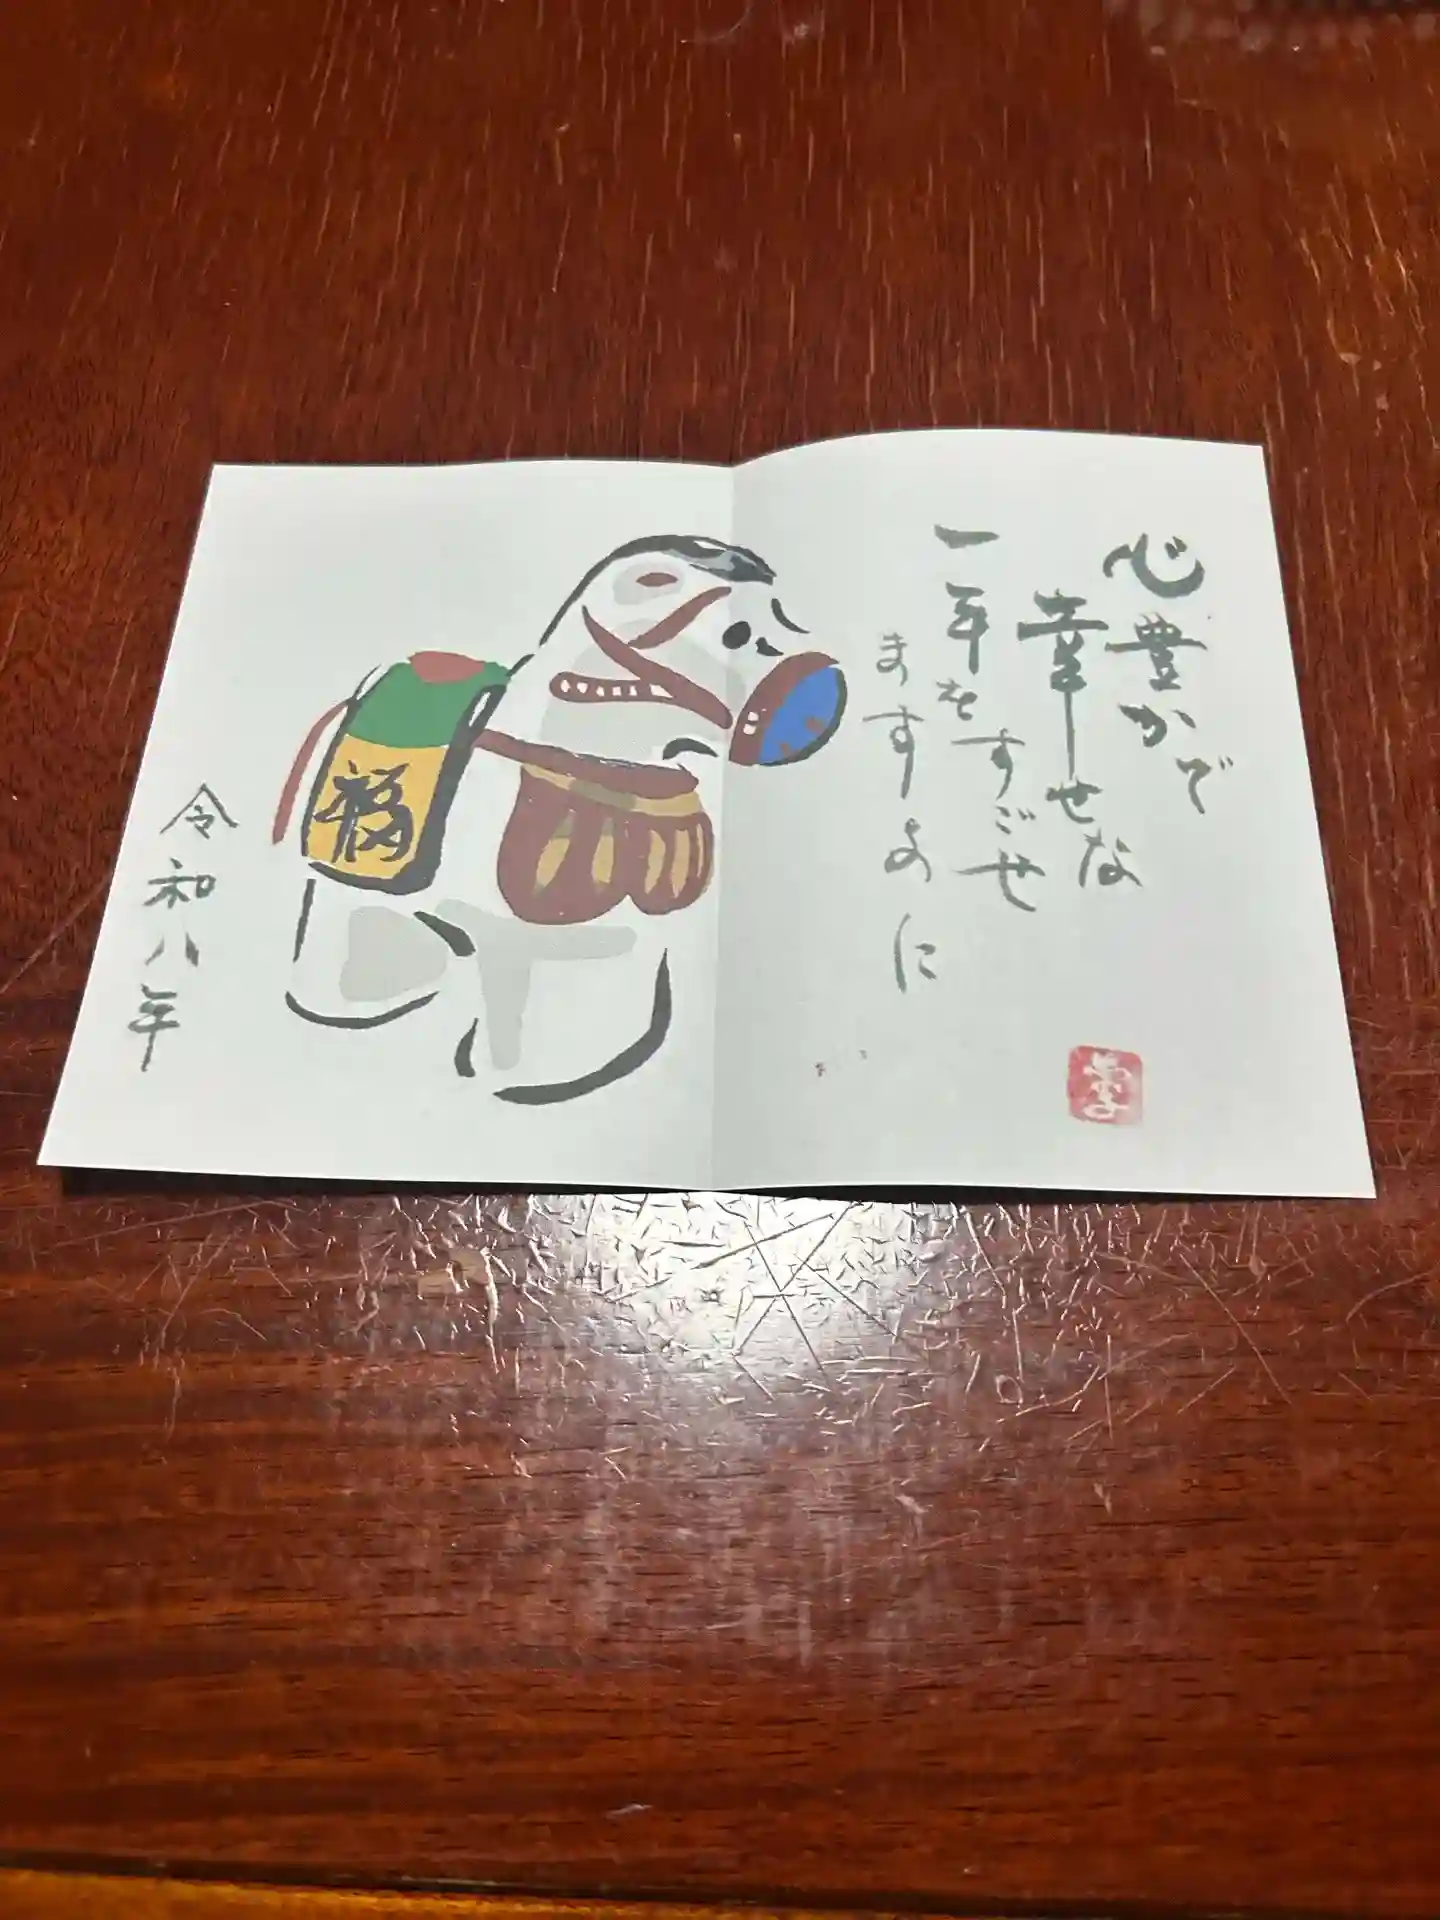 心豊かで
幸せな
一年をすごせ
ますように
福
令和八年